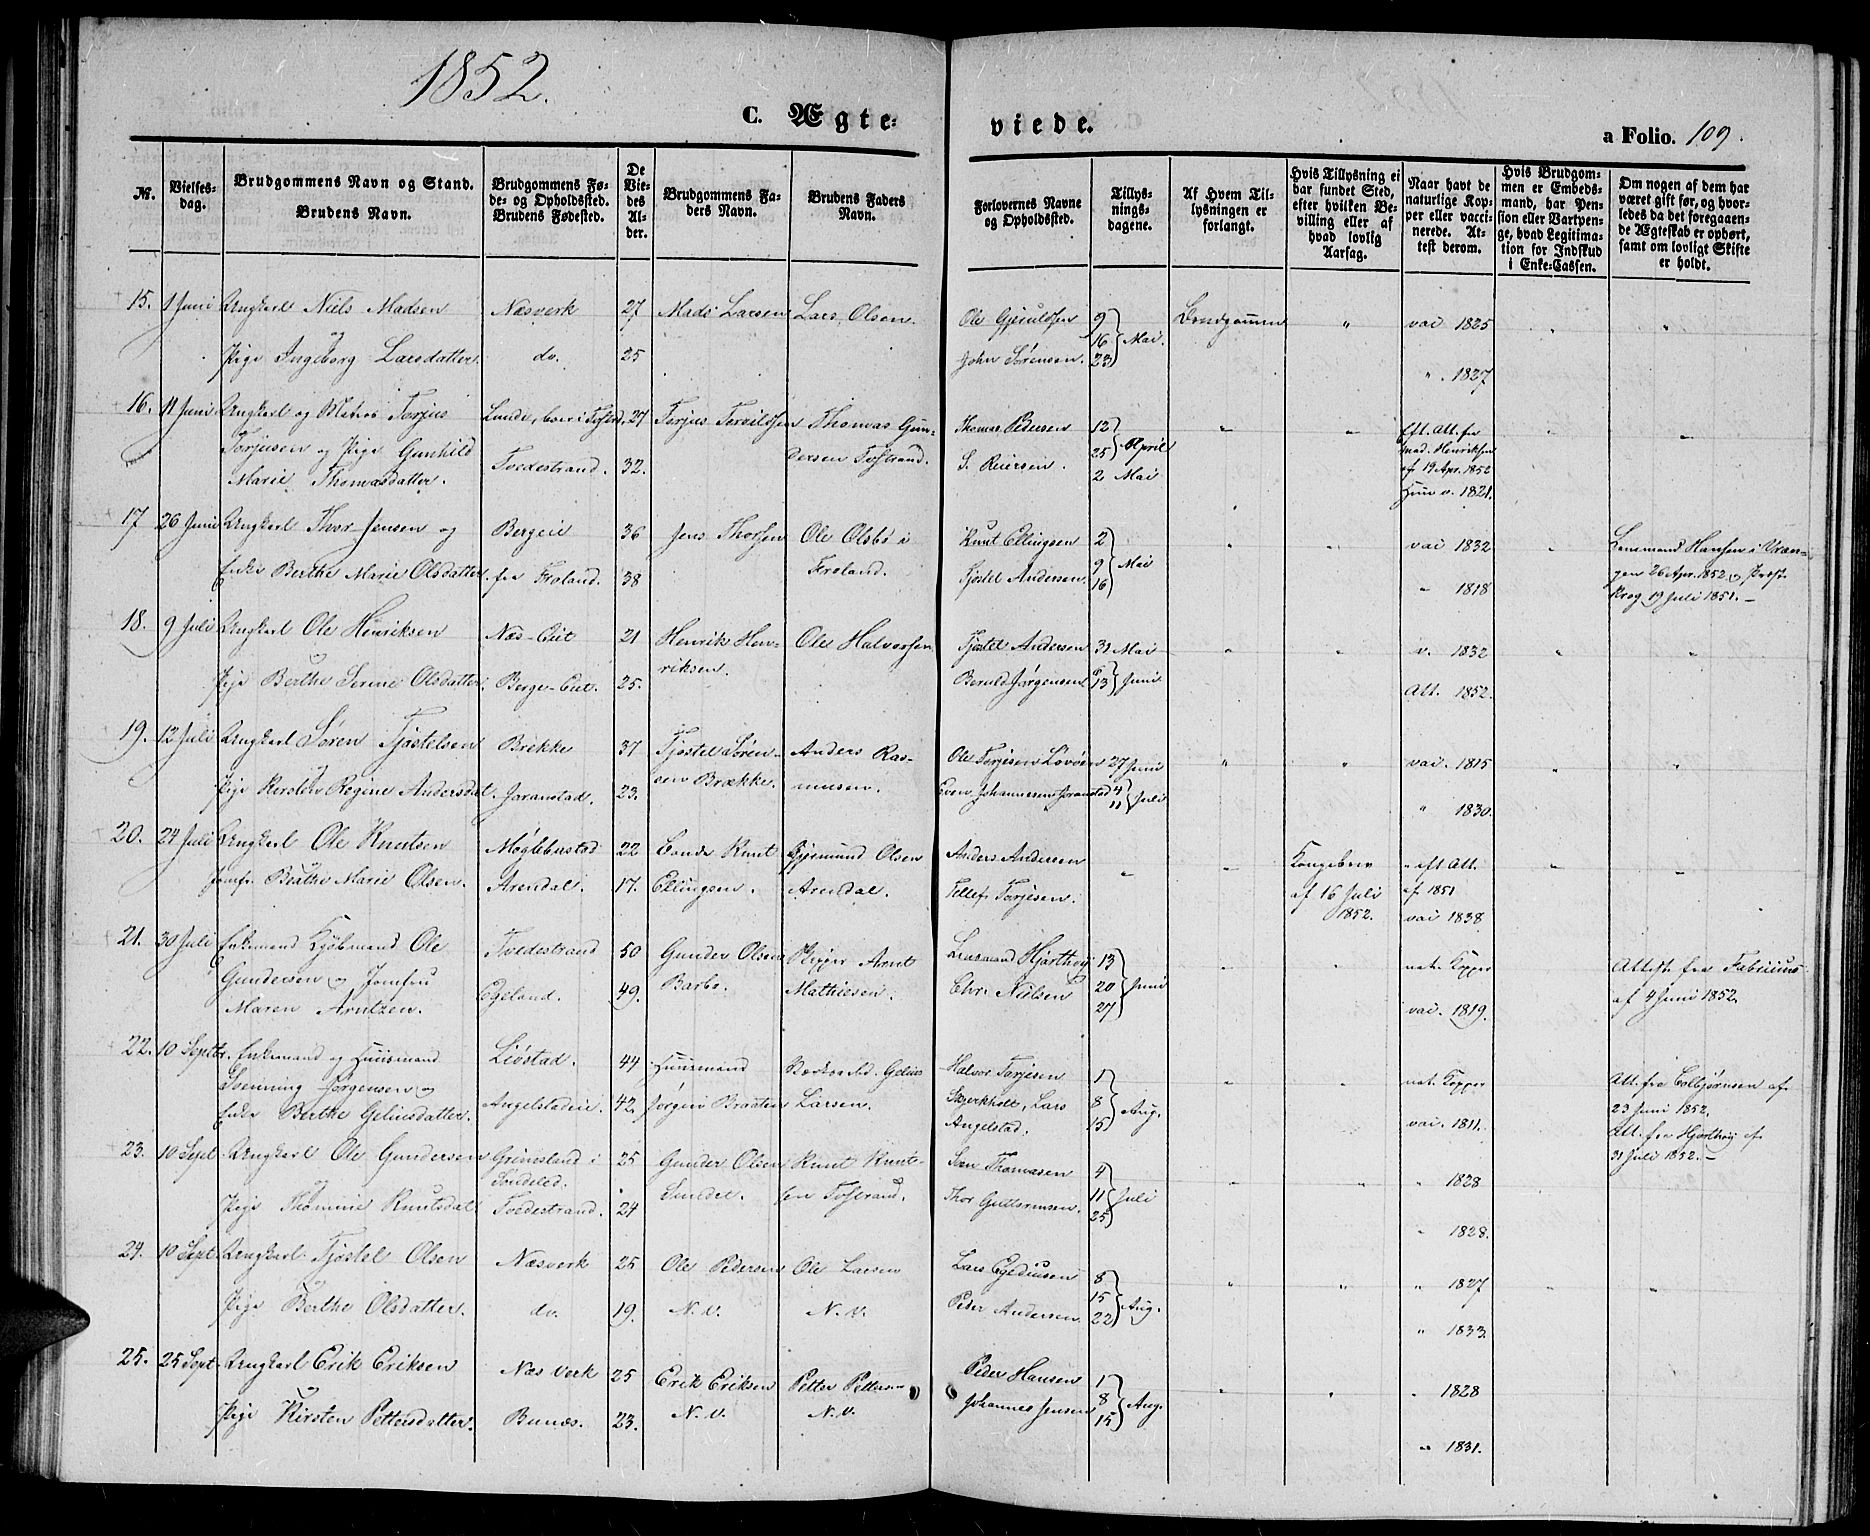 1852.
C. Ægteviede.
a Folio. 109.
№.
Vielsesdag.
Brudgommens Navn og Stand.
Brudens Navn.
Brudgommens Føde- og Opholdssted.
Brudens Fødested.
De Viedes Alder.
Brudgommens Faders Navn.
Brudens Faders Navn.
Forlovernes Navne og Opholdssted.
Tillysningsdagene.
Af Hvem Tillysningen er forlangt.
Hvis Tillysning ei har fundet Sted, efter hvilken Bevilling eller af hvad lovlig Aarsag.
Naar havt de naturlige Kopper eller vaccinerede. Attest derom.
Hvis Brudgommen er Embedsmand, har Pension eller Vartpenge, hvad Legitimation for Indskud i Enke-Cassen.
Om nogen af dem har været gift før, og hvorledes da det foregaaende Ægteskab er ophørt, samt om lovligt Skifte er holdt.
15. 1 Juni Ungkarl Niels Madsen Næsverk 27 Mads Larsen Lars Olsen. Ole Gjeruldsen 9 Brudgommen " vac 1825 " "
og 16 Mai.
Pige Ingeborg Larsdatter. do. 25 John Sørensen. 23
". 1827
16. 11 Juni Ungkarl og Matros Torjus Lunde, boer i Tvestrd. 27 Torjus Terkildsen Thomas Gun- Thomas Pedersen 12 " " Eft. Att. fra
Torjusen og Pige Gunhild Tvedestrand. 32. dersen Tostrand. S. Reiersen. 25 April mad. Henriksen
Marie Thomasdatter. 2 Mai af 19 Apr. 1852
Hun v. 1821.
17 26 Juni Ungkarl Thor Jensen og Bergeie 36 Jens Thorsen Ole Olsbo i Knut Ellingsen 2 " " vac 1832 " Lensmand Hansen i Vran-
Enke Berthe Marie Olsdatter. fra Froland. 38 Froland. Tjøstel Andersen 9 Mai gen 26 Apr. 1852 og Præst
16 " 1818 Krog 19 Juli 1851.
18. 9 Juli Ungkarl Ole Henriksen Næs-Eiet 21 Henrik Hen- Ole Halvorsen Tjøstel Andersen 31 Mai " " v. 1832 " "
og riksen.
Pige Berthe Serine Olsdatter. Berge-Eiet. 25. Beruld Jørgensen 6 13 Juni Att. 1852.
19. 12 Juli Ungkarl Søren Tjøstelsen Brekke 37 Tjøstel Søren- Anders Ras- Ole Torjesen Løvøen 27 Juni " " vac. 1815 " "
og sen Brække. mussen.
Pige Regine Andersdat. Joranstad. 23. Even Johannesen Joranstad 4 11 Juli " 1830.
20. 24 Juli Ungkarl Ole Knutsen Møglebustad 22 Bonde Knut Gjemund Olsen Anders Andersen " Kongebrev " eft Att. " "
Jomfr. Beathe Marie Olsen. Arendal. 17. Ellingsen. Arendal. Tellef Torjesen. af 16 Juli af 1851
1852. vac 1838
21. 30 Juli Enkemand Kjøbmand Ole Tvedestrand 50 Gunder Olsen Skipper Arnt Lensmand Hjorthøy 13 " " nat. Kopper Attest fra Fabricius
Gundersen og Jomfru Egeland. 49. Barbo. Mathiesen. Chr. Nielsen 20 Juni af 4 Juni 1852
Maren Arntzen. 27 vac. 1819.
22. 10 Septbr. Enkemand og Huusmand Liøstad. 44 Huusmand Gelius Halvor Torjesen 1 " " nat. Kopper Att. fra Colbjørnsen af
Svenning Jørgensen og Skjerkholt, Lars 8 Aug. 23 Juni 1852.
Enke Berthe Geliusdatter. Angelstadeie. 42. Jørgen Braaten Larsen. Angelstad. 15 vac. 1811. Att. fra Hjorthøy af
31 Juli 1852.
23. 10 Sept Ungkarl Ole Gundersen Grimsland i 25 Gunder Olsen Knut Knut- Thomasen 4 " " " 1828
og Søndeled. Sundet. sen Tostrand. 11 Juli
Pige Thomine Knutsdat Tvedestrand. 24 Thor Guttormsen. 25 " 1828.
24. 10 Sept. Ungkarl Tjøstel Olsen Næsverk 25 Ole Pedersen Ole Larsen Lars Egediusen 8 " " " 1827 " "
og 15 Aug.
Pige Berthe Olsdatter. do. 19. N. V. N. V. Peder Andersen 22
" 1833.
25. 25 Sept. Ungkarl Erik Eriksen Næs Verk 25 Erik Eriksen Petter Petters Peder Hansen 1 " " " 1828
og N. V. N. V. 8 Aug.
Pige Kirsten Pettersdatter. Bunæs. 23. Johannes Jensen 15
" 1831.